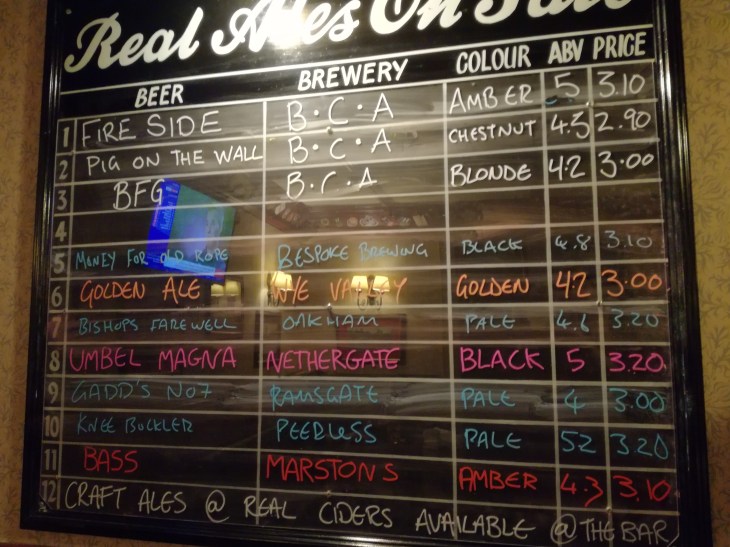 Real Ales On Sale
BEER BREWERY COLOUR ABV PRICE
1 FIRE SIDE B.C.A AMBER 5 3.10
2 PIG ON THE WALL B.C.A CHESTNUT 4.3 2.90
3 BFG B.C.A BLONDE 4.2 3.00
4
5 MONEY FOR OLD ROPE BESPOKE BREWING BLACK 4.8 3.10
6 GOLDEN ALE WYE VALLEY GOLDEN 4.2 3.00
7 BISHOPS FAREWELL OAKHAM PALE 4.6 3.20
8 UMBEL MAGNA NETHERGATE BLACK 5 3.20
9 GADD'S NO7 RAMSGATE PALE 4 3.00
10 KNEE BUCKLER PEERLESS PALE 52 3.20
11 BASS MARSTONS AMBER 4.3 3.10
12 CRAFT ALES @ REAL CIDERS AVAILABLE @ THE BAR